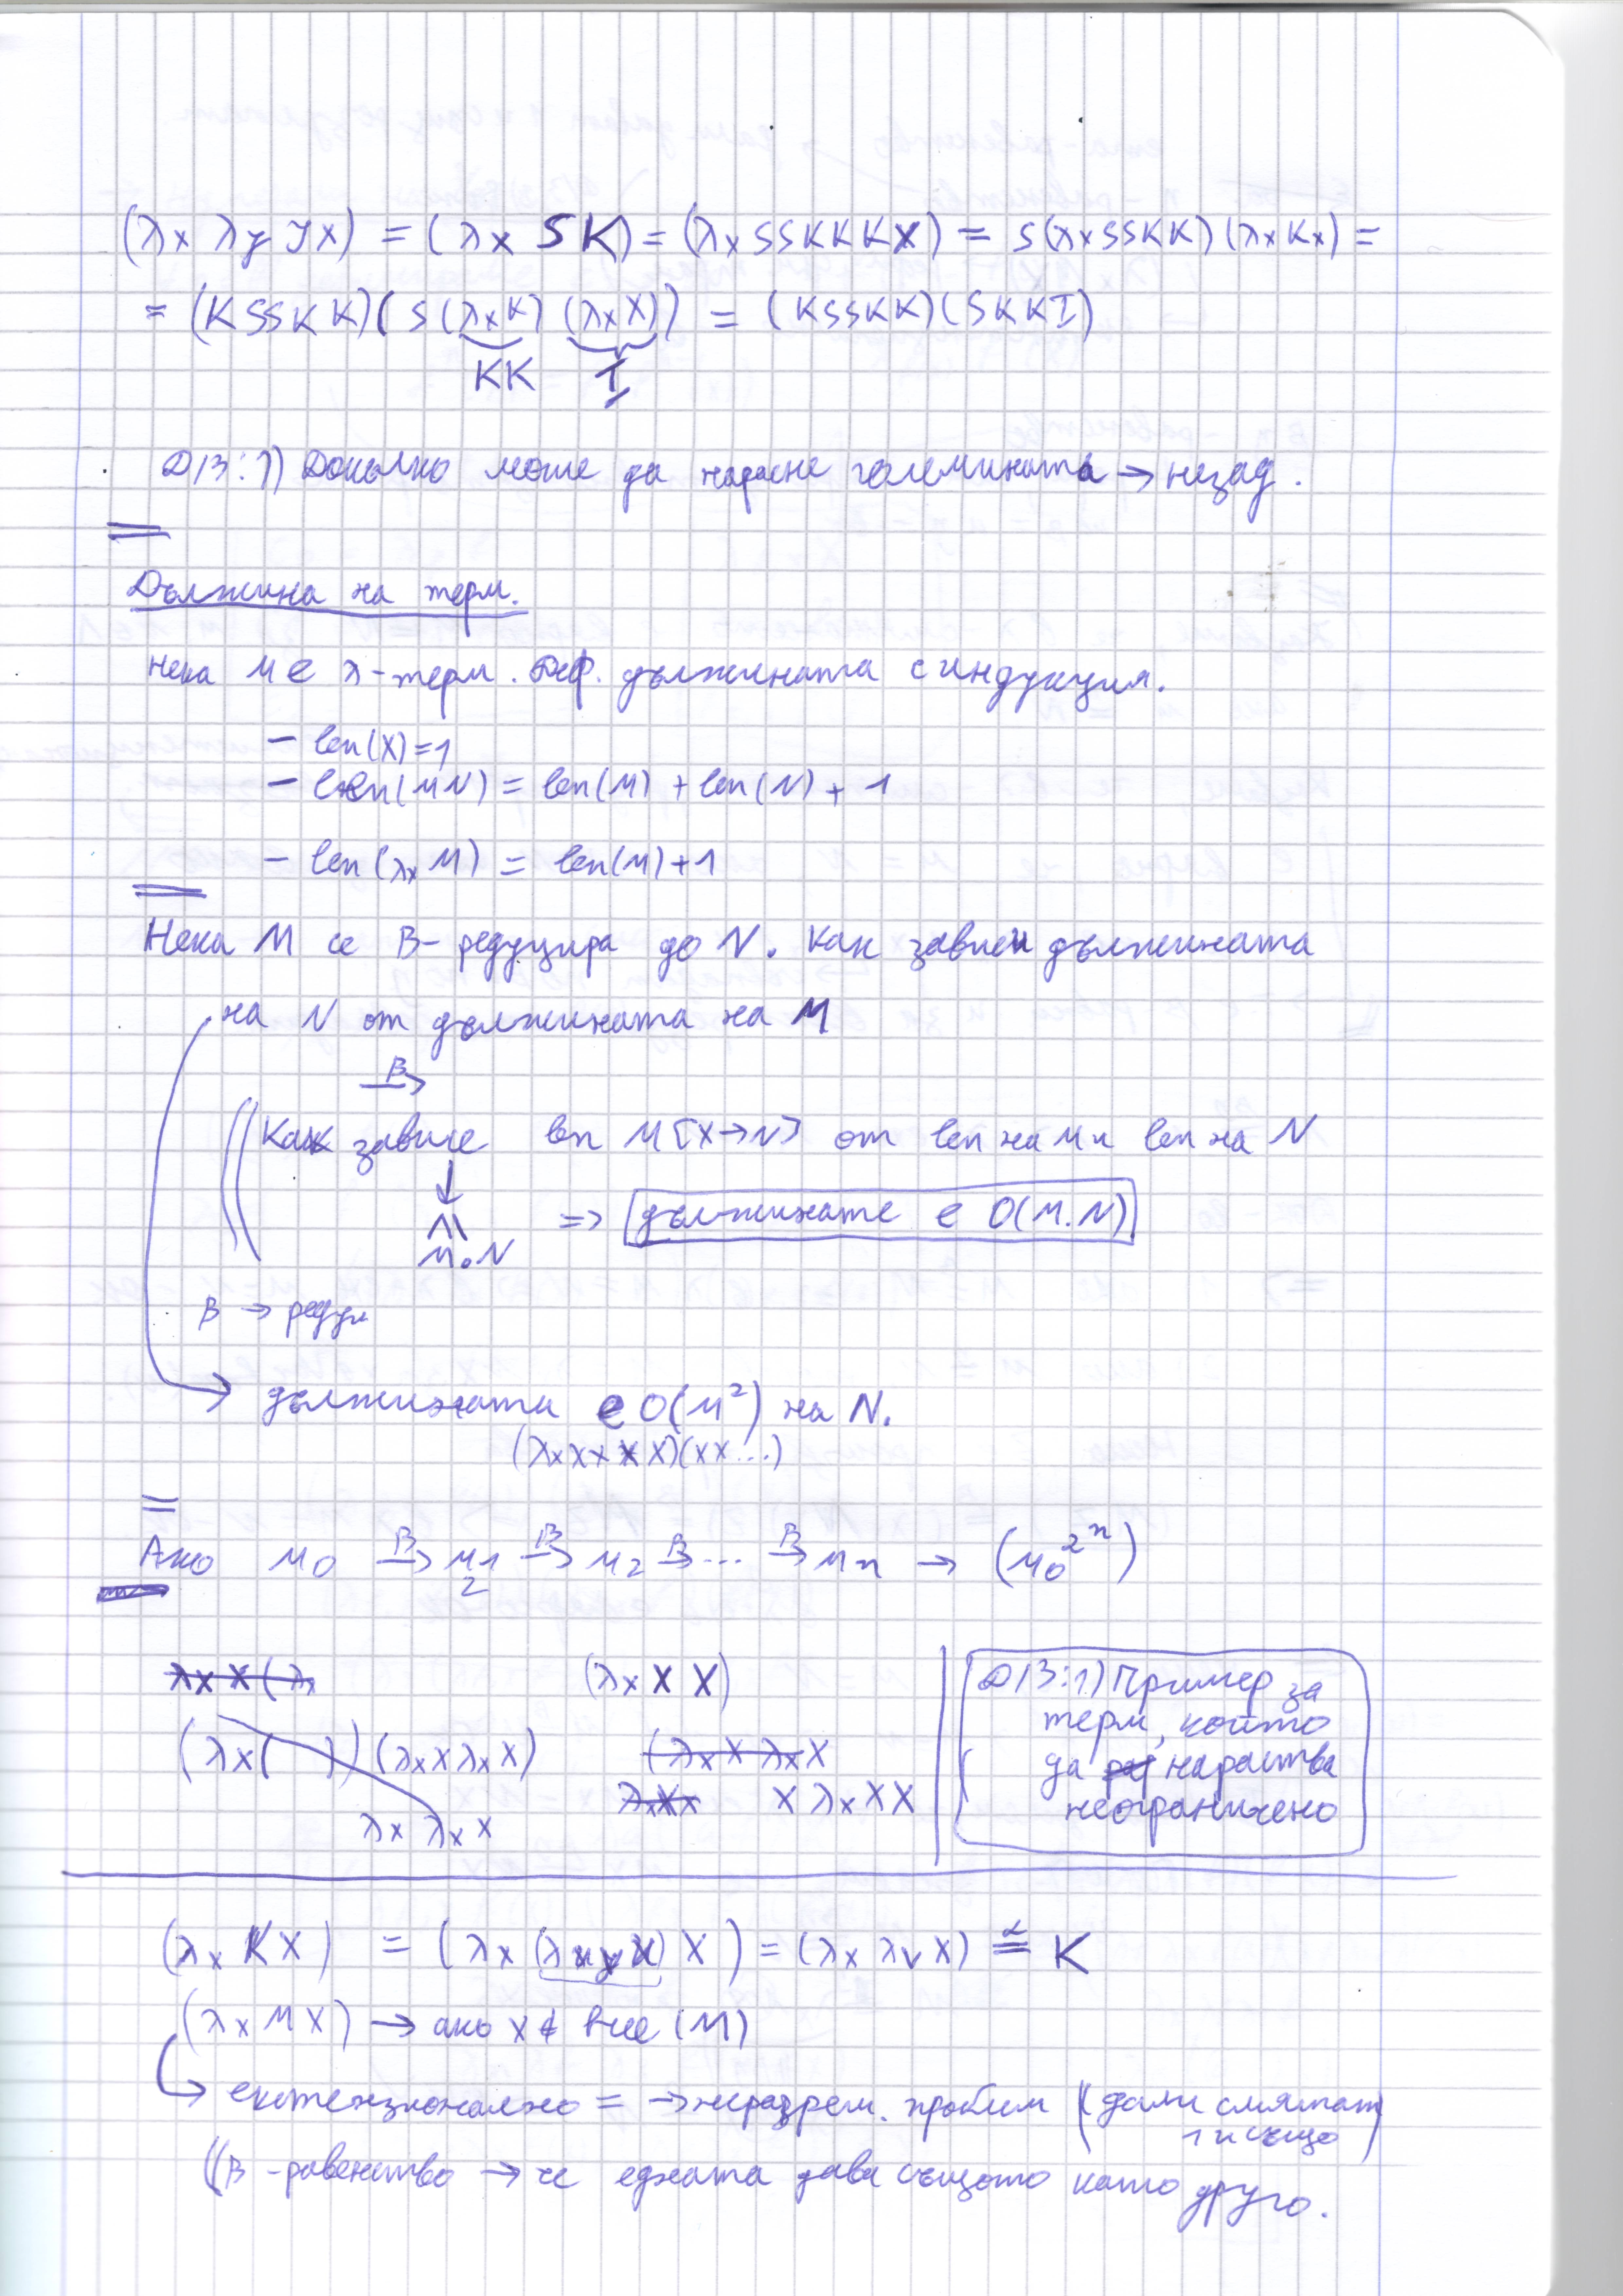 (λx λy yx) = (λx SK) = (λx SSKKKX) = S(λxSSKK)(λxKx) =
= (KSSKK)(S(λxK)(λxX)) = (KSSKK)(SKKI)
KK I
Д/З:1) Доколко може да нарасне големината → назад.
Дължина на терм.
Нека M е λ-терм. Деф. дължината с индукция.
- len(X)=1
- len(MN) = len(M) + len(N) + 1
- len(λxM) = len(M)+1
Нека M се β-редуцира до N. Как зависи дължината
на N от дължината на M
β→
Как зависе len M[X→N] от len на M и len на N
↓
M.N => дължината е O(M.N)
β → редук
→ дължината е O(M²) на N.
(λxXXXX)(XX...)
=
Ако M0 β→ M1 β→ M2 β→ ... β→ Mn → (M0^2^n)
2
λx X (λ (λx X X)
(λx( ))(λxXλxX) (λxX λxX
λx λx X λxXx X λxXX
Д/З:1) Пример за
терм, който
да нараства
неограничено
(λx KX) = (λx (λxyX) X) = (λx λy X) α= K
(λx M X) → ако X ∉ Все (M)
→ екстензионално = → неразреш. проблем (дали смятат
1 и също)
((β-равенство → че едната дава същото като друго.